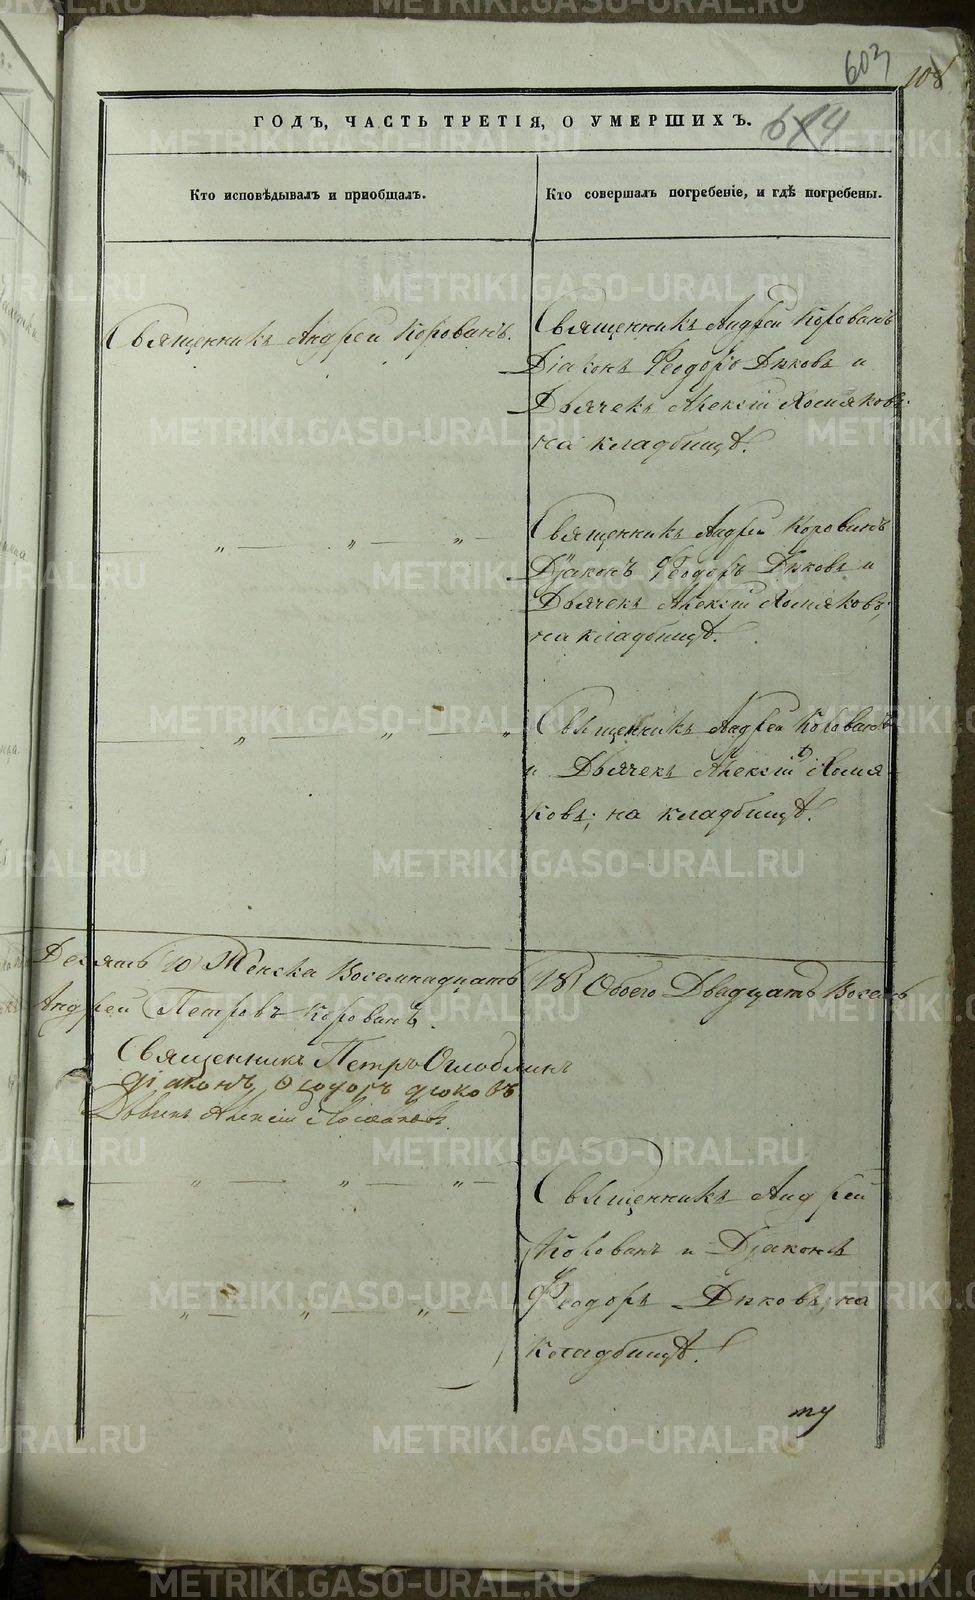 603
108
614
ГОДЪ, ЧАСТЬ ТРЕТІЯ, О УМЕРШИХЪ.
Кто исповѣдывалъ и пріобщалъ.
Кто совершалъ погребеніе, и гдѣ погребены.
Священникъ Андрей Корованъ.
Священникъ Андрей Корованъ
Діаконъ Ѳеодоръ Дюковъ и
Дьячекъ Алексій Хомяковъ.
на кладбищѣ.
Священникъ Андрей Корованъ
Діаконъ Ѳеодоръ Дюковъ и
Дьячекъ Алексій Хомяковъ;
на кладбищѣ.
Священникъ Андрей Корованъ
и Дьячекъ Алексій Хомя-
ковъ; на кладбищѣ.
Десять 10 Женска Восемнадцать 18 Обоего Двадцать Восемь
Андрей Петровъ Корованъ.
Священникъ Петръ Оглоблинъ
Діаконъ Ѳеодоръ Дюковъ
Дьячекъ Алексій Хомяковъ.
Священникъ Андрей
Корованъ и Діаконъ
Ѳеодоръ Дюковъ; на
кладбищѣ.
METRIKI.GASO-URAL.RU